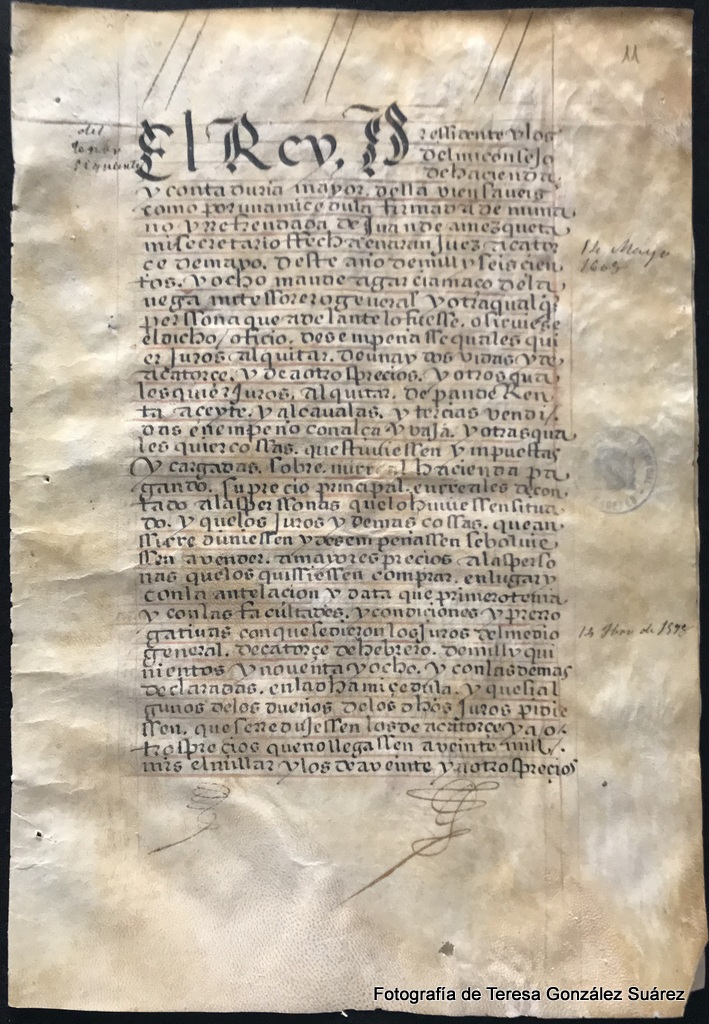 11
del
tenor
siguiente
El Rey. Pressidente y los
del mi consejo
de hacienda,
y contaduria mayor. della bien saveis
como por una mi cedula firmada de mi ma
no y rrefrendada de Juan de amezqueta
mi secretario ffecha en aranjuez a cator
ce de mayo. deste año de mill y seis cien
tos. y ocho mande a garcia maço de la
vega mi tessorero general y otra qualqr
perssona que adelante lo fuesse. o sirviese
el dicho officio. desempeñasse quales qui
er Juros al quitar. de una y dos vidas y de
a catorçe. y de a otros precios. y otros qua
les quier Juros. al quitar. de pan de Ren
ta aceyte. y alcavalas. y tercias vendi/
das en empeño con alça y baja. y otras qua
les quier cossas. que stuviessen ympuestas
y cargadas. sobre. mi rreal hacienda pa
gando. su precio principal. en rreales de con
tado a las perssonas que lo huviessen situa
do. y que los Juros y demas cossas. que an
ssi rreduniessen y desempeñassen se bolvie
ssen a vender. a mayores precios a las perso
nas que los quissiessen comprar. en lugar y
con la antelacion y data que primero tenia
y con las facultades. y condiciones y prerro
gativas con que se dieron los Juros del medio
general. de catorçe de hebrero. de mill y qui
nientos y noventa y ocho. y con las demas
declaradas. en la dha mi çedula. y que si al
gunos de los dueños de los dhos Juros pidie
ssen. que se rredujessen los de a catorçe y a o/
tros precios que no llegassen a veinte mill/.
mrs el millar y los de a veinte y a otros preçios
14 Mayo
1608
14 de 1598
Fotografía de Teresa González Suárez